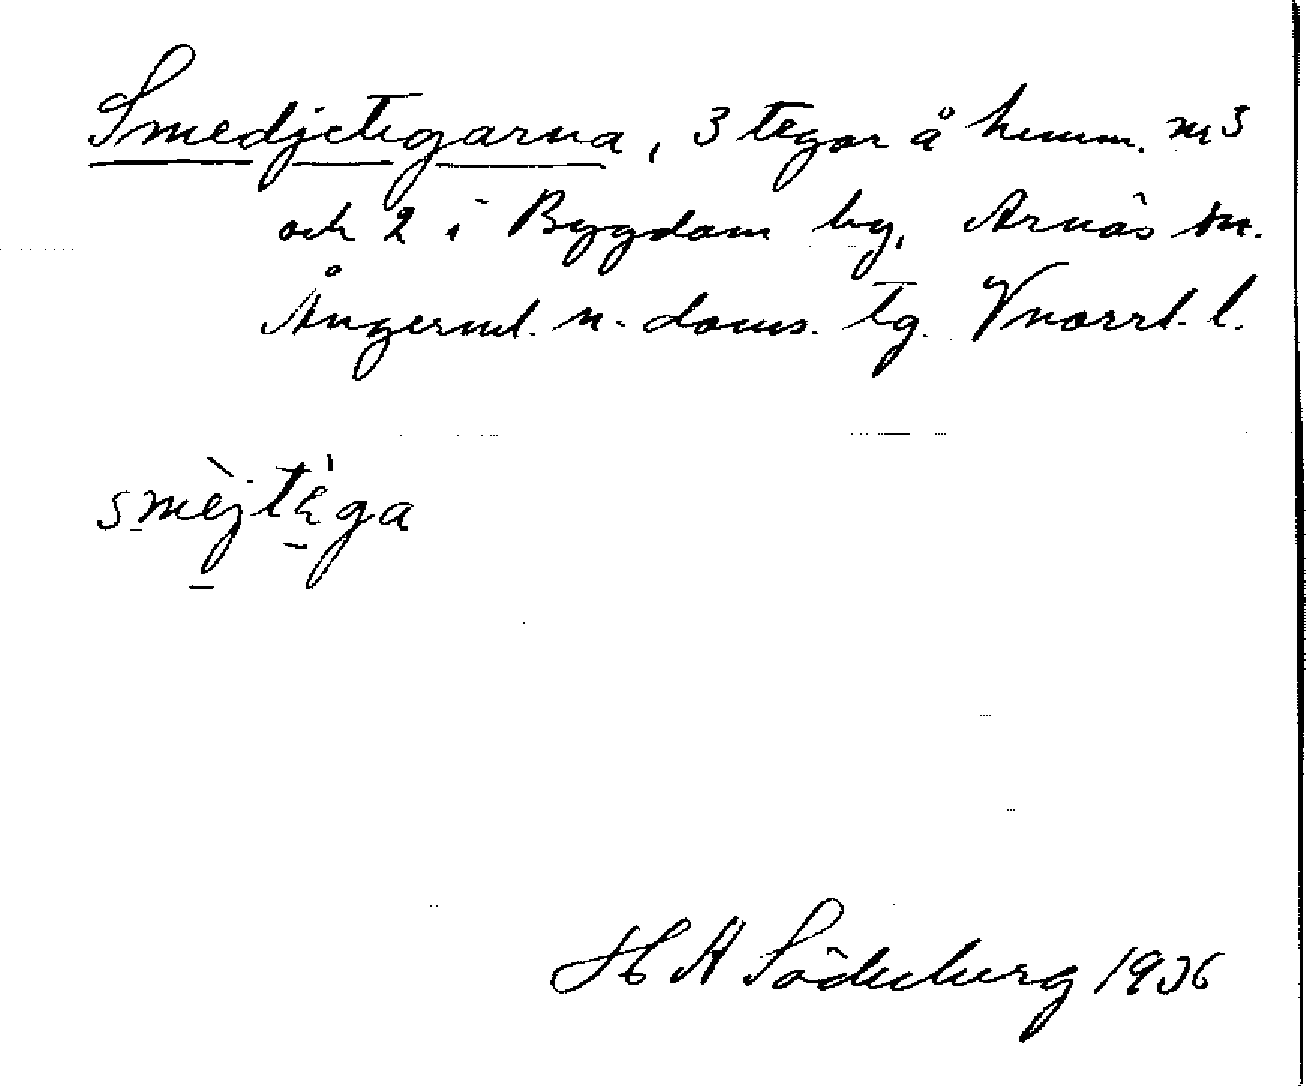 Smedjetegarna, 3 tegar å hemm. n:r 3
och 2 i Bygdom by, Arnäs sn.
Ångerml. n. doms. tg. Vnorrl. l.
smèjtèga
H A Söderberg 1936